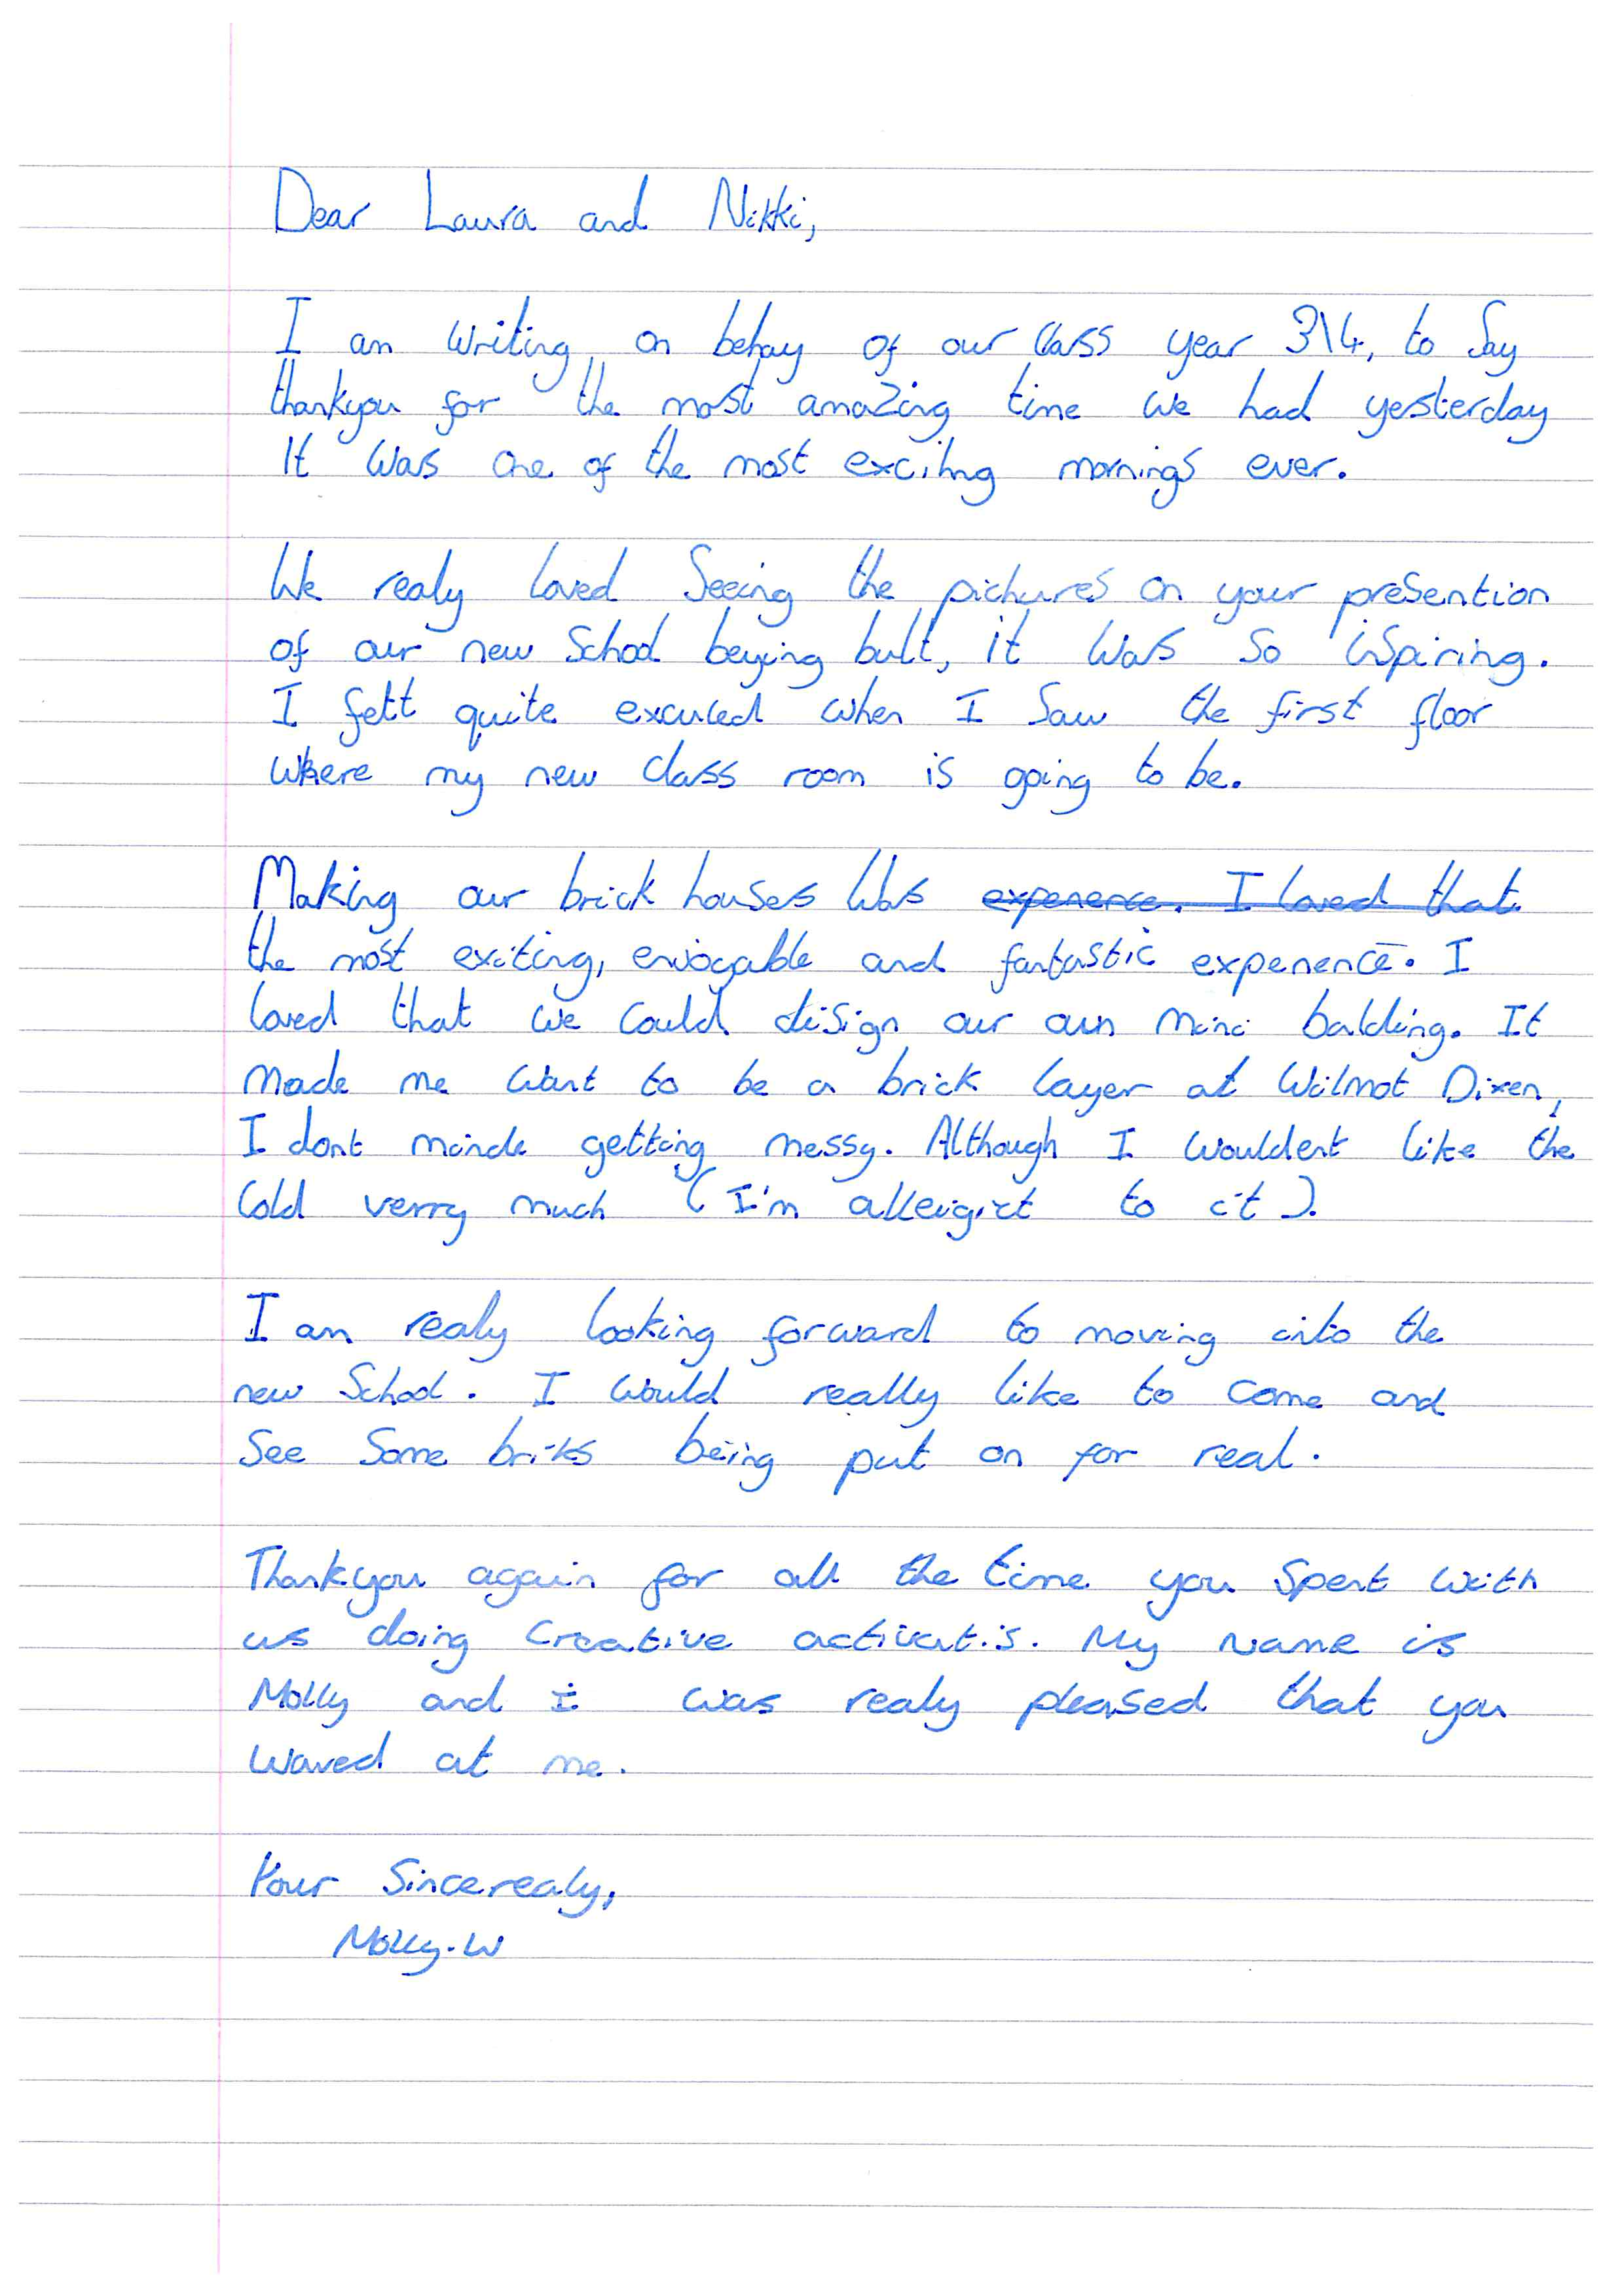 Dear Laura and Nikki,
I am writing on behay of our class year 3\4, to say
thankyou for the most amazing time we had yesterday
It was one of the most exciting mornings ever.
We realy loved seeing the pichures on your presention
of our new school beying bult, it was so ispiring.
I felt quite excuted when I saw the first floor
where my new class room is going to be.
Making our brick houses was experence. I loved that
the most exciting, enjoyable and fantastic experence. I
loved that we could disign our own mini balding. It
made me want to be a brick layer at Wilmot Dixen,
I dont minde getting messy. Although I wouldent like the
cold verry much (I'm alleigict to it).
I am realy looking forward to moving into the
new school. I would really like to come and
see some briks being put on for real.
Thankyou again for all the time you spent with
us doing creative activatis. My name is
Molly and i was realy pleased that you
waved at me.
Your Sincerealy,
Molly.W